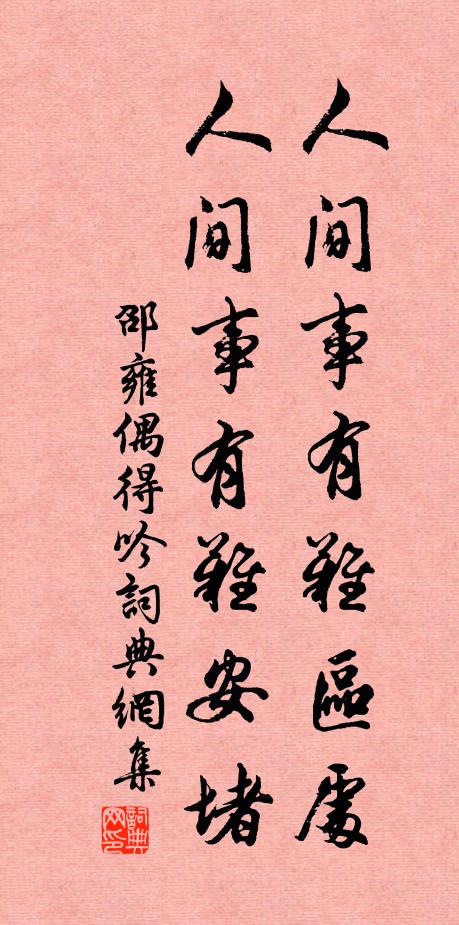 人间事有難區處
人间事有難安堵
邵雍偶得吟詞典網集
詞典網印